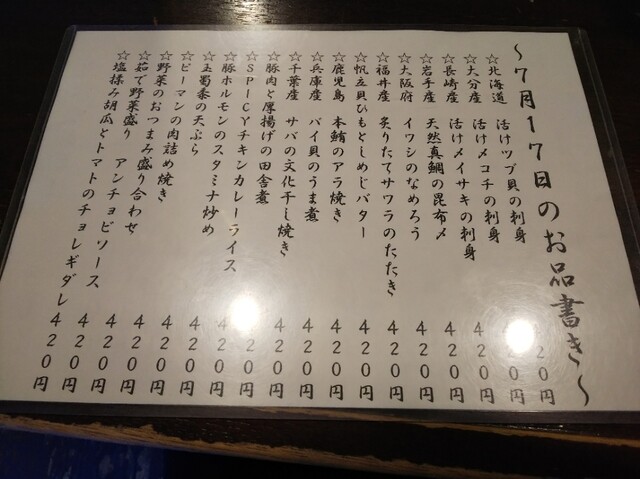 ～７月１７日のお品書き～
☆北海道 活けツブ貝の刺身 ４２０円
☆大分産 活けメコチの刺身 ４２０円
☆長崎産 活けメイサキの刺身 ４２０円
☆岩手産 天然真鯛の昆布〆 ４２０円
☆大阪府 イワシのなめろう ４２０円
☆福井産 炙りたてサワラのたたき ４２０円
☆帆立貝ひもとしめじバター ４２０円
☆鹿児島 本鮪のアラ焼き ４２０円
☆兵庫産 バイ貝のうま煮 ４２０円
☆千葉産 サバの文化干し焼き ４２０円
☆豚肉と厚揚げの田舎煮 ４２０円
☆ＳＰＩＣＹチキンカレーライス ４２０円
☆豚ホルモンのスタミナ炒め ４２０円
☆玉蜀黍の天ぷら ４２０円
☆ピーマンの肉詰め焼き ４２０円
☆野菜のおつまみ盛り合わせ ４２０円
☆茹で野菜盛り アンチョビソース ４２０円
☆塩揉み胡瓜とトマトのチョレギダレ ４２０円